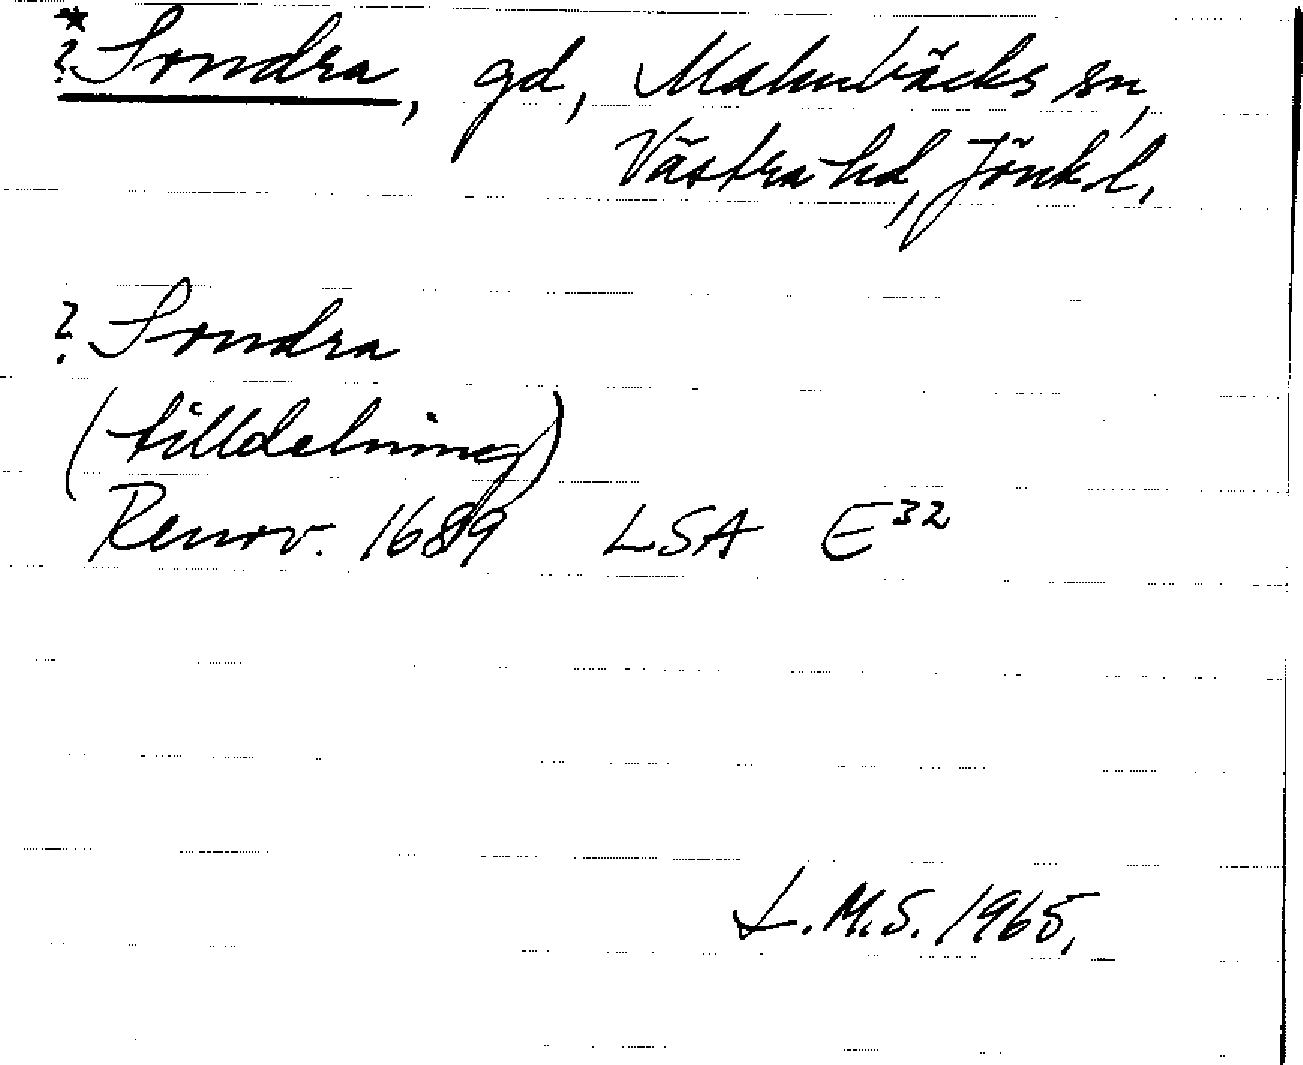 *
? Sondra, gd, Malmbäcks sn,
Västra hd, Jönk.l.
? Sondra
(tilldelning)
Renov. 1689 LSA E³²
L.M.S. 1965.